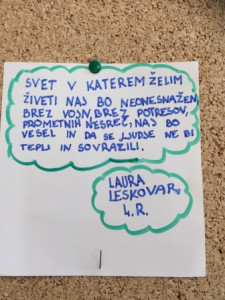 SVET V KATEREM ŽELIM
ŽIVETI NAJ BO NEONESNAŽEN,
BREZ VOJN, BREZ POTRESOV,
PROMETNIH NESREČ, NAJ BO
VESEL IN DA SE LJUDJE NE BI
TEPLI IN SOVRAŽILI.
LAURA
LESKOVAR,
4. R.